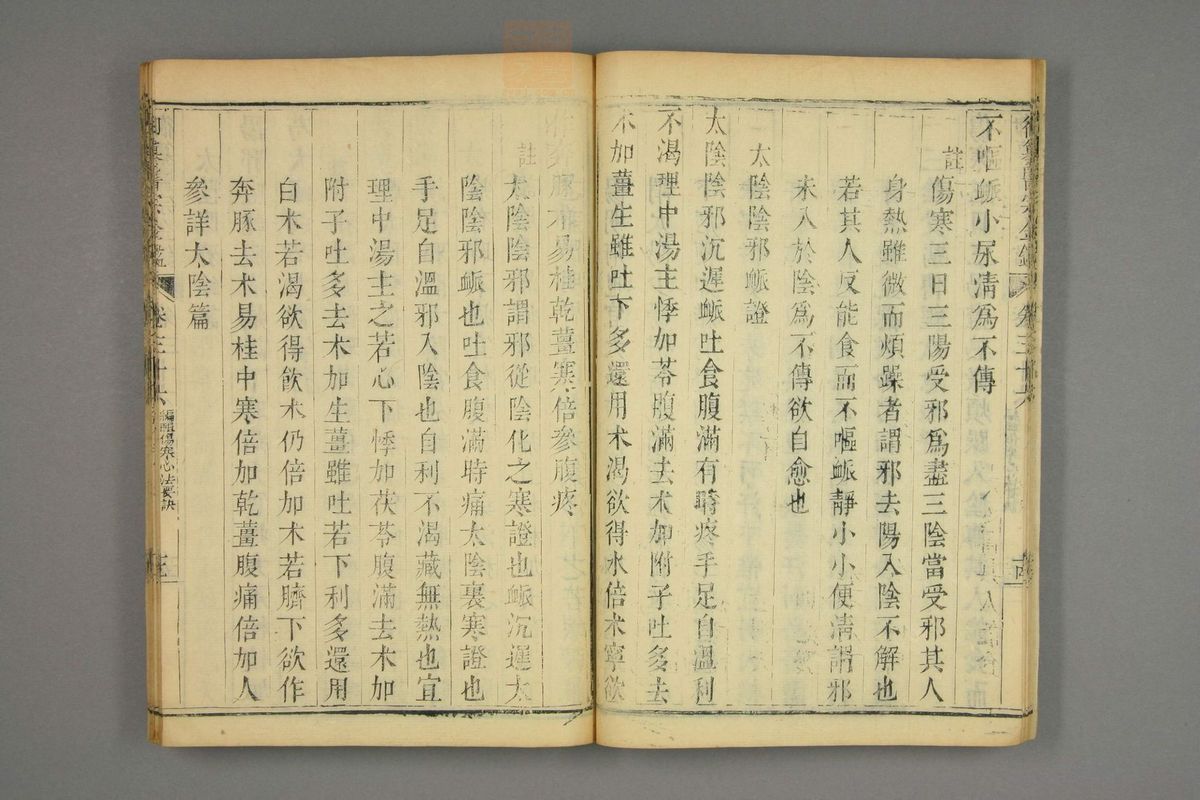 不嘔脈小尿清為不傳
註
傷寒三日三陽受邪為盡三陰當受邪其人
身熱雖微而煩躁者謂邪去陽入陰不解也
若其人反能食而不嘔脈靜小小便清謂邪
未入於陰為不傳欲自愈也
太陰陰邪脈證
太陰陰邪沉遲脈吐食腹滿有時疼手足自溫利
不渴理中湯主悸加苓腹滿去朮加附子吐多去
朮加薑生雖吐下多還用朮渴欲得水倍朮寧欲
豚朮易桂乾薑寒倍參腹疼
註
太陰陰邪謂邪從陰化之寒證也脈沉遲太
陰陰邪脈也吐食腹滿時痛太陰裏寒證也
手足自溫邪入陰也自利不渴藏無熱也宜
理中湯主之若心下悸加茯苓腹滿去朮加
附子吐多去朮加生薑雖吐若下利多還用
白朮若渴欲得飲水仍倍加朮若臍下欲作
奔豚去朮易桂中寒倍加乾薑腹痛倍加人
參詳太陰篇
御纂醫宗金鑑
卷三十六
編輯傷寒心法要訣